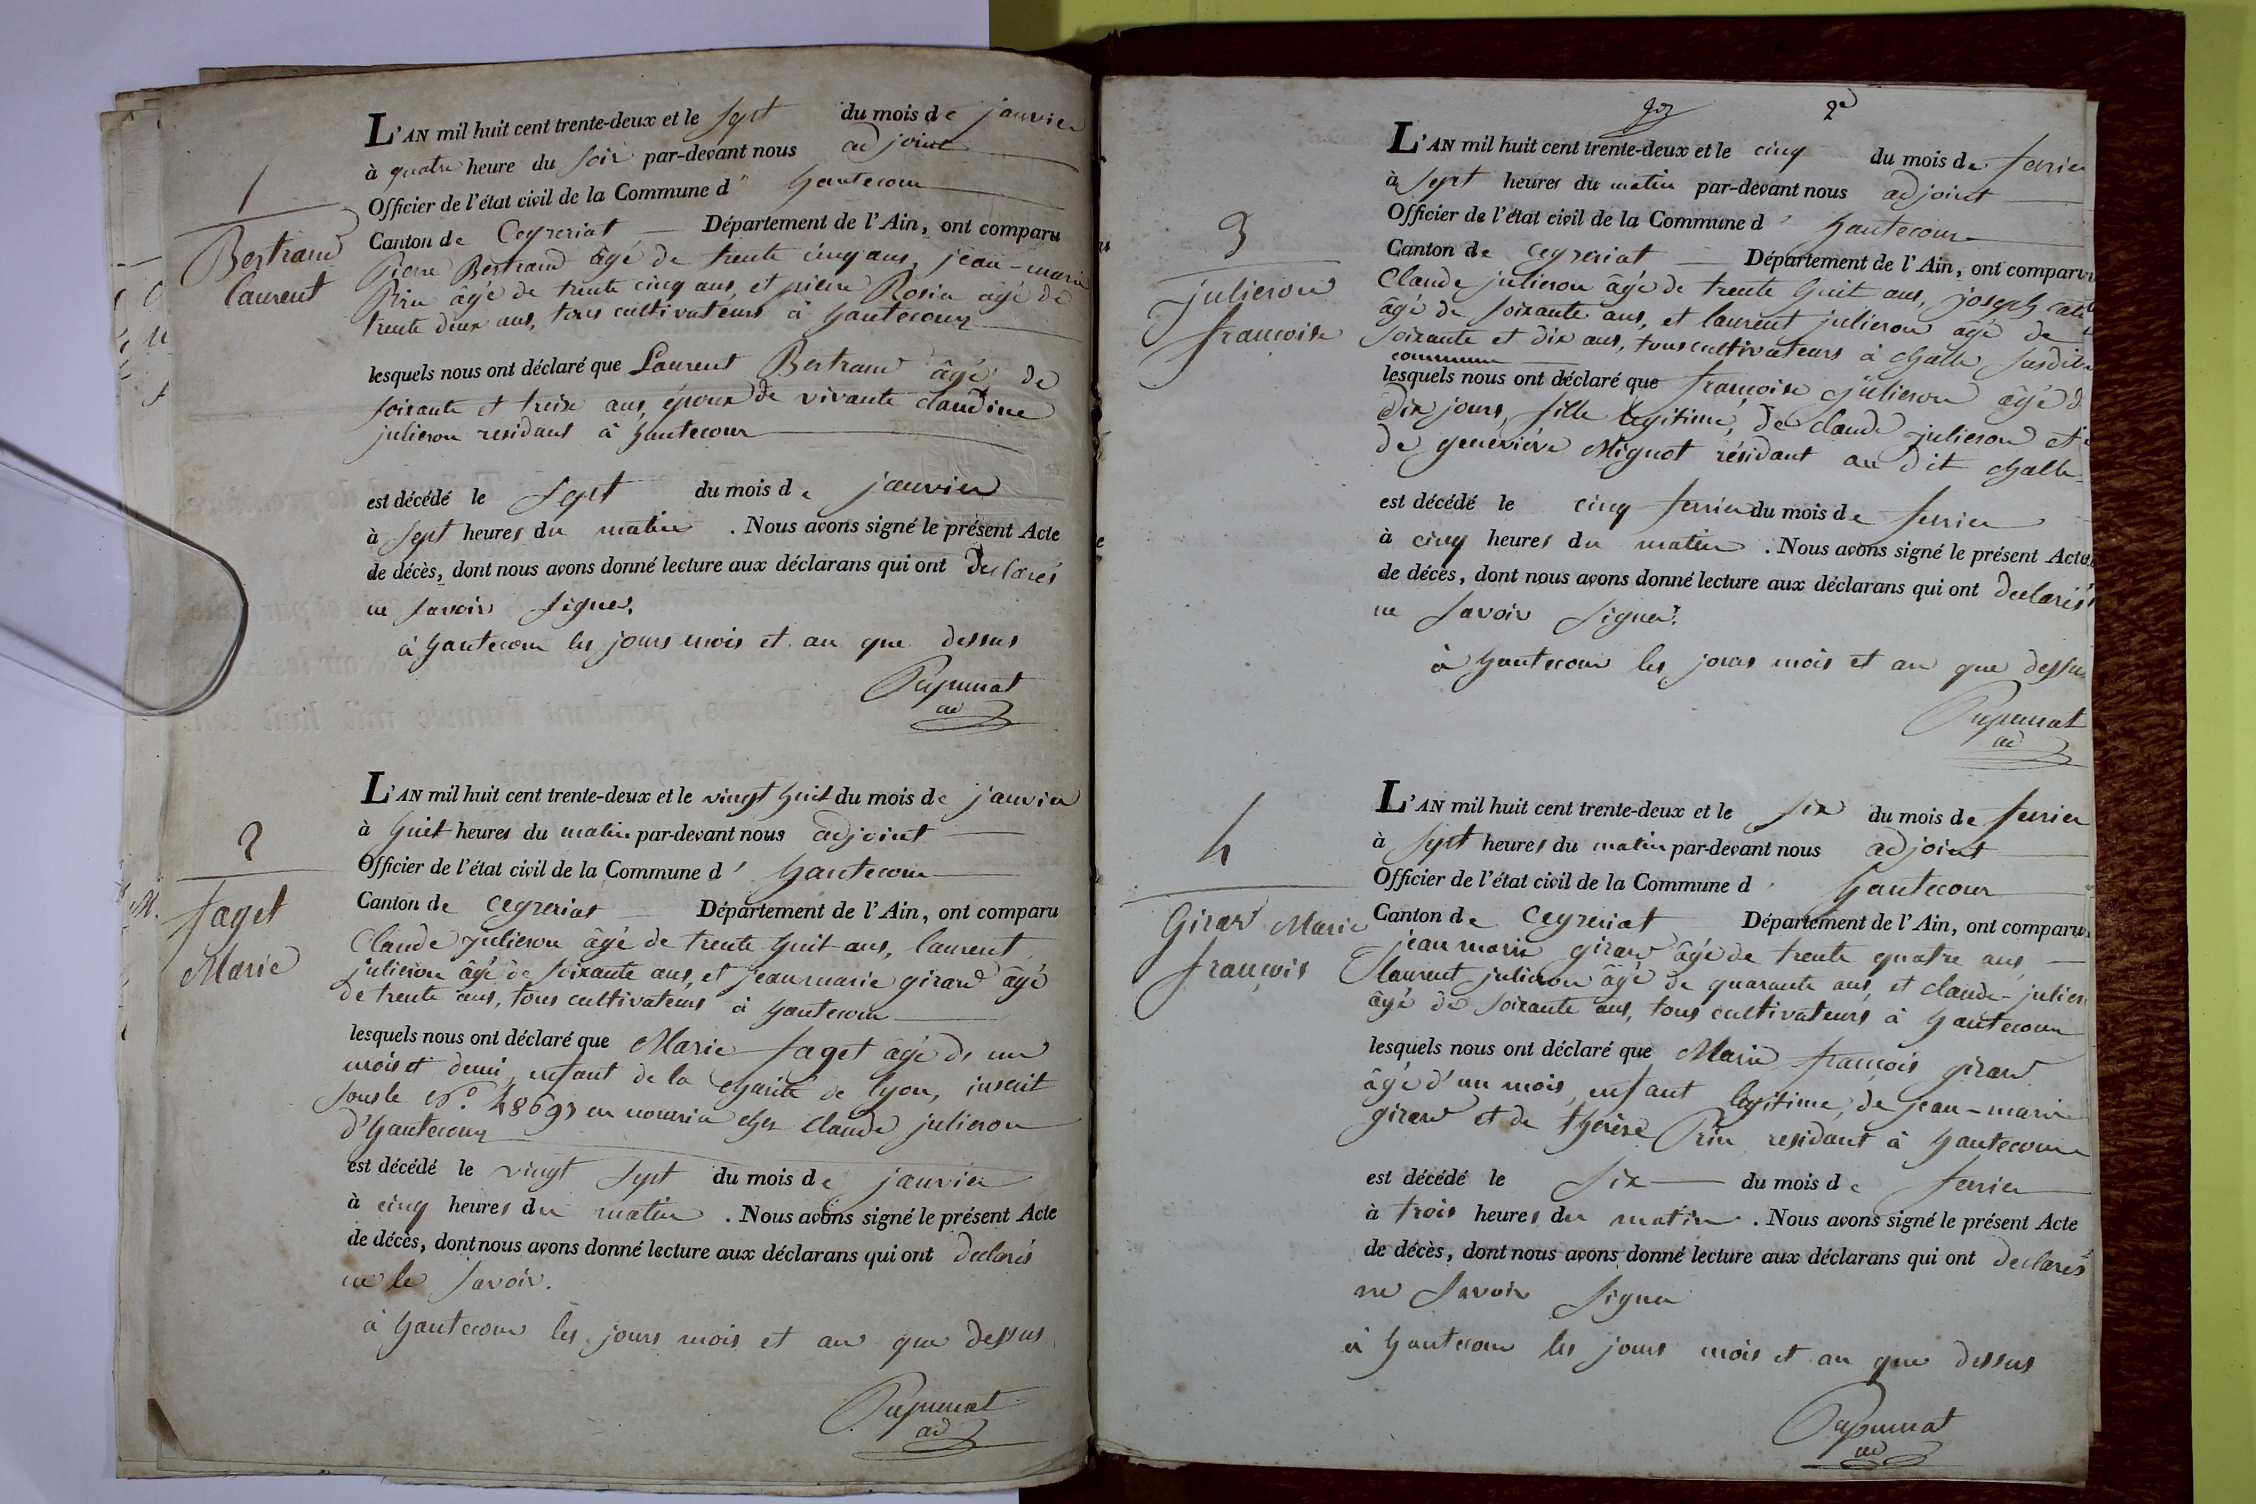 1
Bertrand
laurent
L'AN mil huit cent trente-deux et le sept du mois de janvier
à quatre heure du soir par-devant nous adjoint
Officier de l'état civil de la Commune d' hautecour
Canton de Ceyzeriat Département de l'Ain, ont comparu
Pierre Bertrand âgé de trente cinq ans, jean-marie
Prin âgé de trente cinq ans, et pierre Rosin âgé de
trente deux ans, tous cultivateurs à hautecour
lesquels nous ont déclaré que Laurent Bertrand âgé de
soixante et treize ans, époux de vivante claudine
julieron residant à hautecour
est décédé le sept du mois de janvier
à sept heures du matin . Nous avons signé le présent Acte
de décès, dont nous avons donné lecture aux déclarans qui ont declarés
ne savoir signer.
à hautecour les jours mois et an que dessus
ad
2
faget
Marie
L'AN mil huit cent trente-deux et le vingt huit du mois de janvier
à huit heures du matin par-devant nous adjoint
Officier de l'état civil de la Commune d' hautecour
Canton de Ceyzeriat Département de l'Ain, ont comparu
Claude julieron âgé de trente huit ans, laurent
julieron âgé de soixante ans, et jean marie girard âgé
de trente ans, tous cultivateurs à hautecour
lesquels nous ont déclaré que Marie faget âgé de un
mois et demi, enfant de la charité de lyon, inscrit
sous le N° en nourrice chez Claude julieron
d'hautecour
est décédé le vingt sept du mois de janvier
à cinq heures du matin . Nous avons signé le présent Acte
de décès, dont nous avons donné lecture aux déclarans qui ont declarés
ne le savoir.
à hautecour les jours mois et an que dessus
ad
2e
3
julieron
francoise
L'AN mil huit cent trente-deux et le cinq du mois de fevrier
à sept heures du matin par-devant nous adjoint
Officier de l'état civil de la Commune d' hautecour
Canton de Ceyzeriat Département de l'Ain, ont comparu
Claude julieron âgé de trente huit ans, joseph
âgé de soixante ans, et laurent julieron agé de
soixante et dix ans, tous cultivateurs à challe susdite
commune
lesquels nous ont déclaré que françoise julieron âgé d
dix jours, fille legitime, de claude julieron et
de geneviève Mignot résidant au dit challe
est décédé le cinq fevrier du mois de fevrier
à cinq heures du matin . Nous avons signé le présent Acte
de décès, dont nous avons donné lecture aux déclarans qui ont declarés
ne savoir signer.
à hautecour les jours mois et an que dessus
ad
4
Girard Marie
françois
L'AN mil huit cent trente-deux et le six du mois de fevrier
à sept heures du matin par-devant nous adjoint
Officier de l'état civil de la Commune d' hautecour
Canton de Ceyzeriat Département de l'Ain, ont comparu
jean marie girard âgé de trente quatre ans,
laurent julieron âgé de quarante ans, et claude-julieron
âgé de soixante ans, tous cultivateurs à hautecour
lesquels nous ont déclaré que Marie françois girard
âgé d'un mois, enfant legitime, de jean-marie
girard et de thérèse Prin residant à hautecour
est décédé le six du mois de fevrier
à trois heures du matin . Nous avons signé le présent Acte
de décès, dont nous avons donné lecture aux déclarans qui ont declarés
ne savoir signer
à hautecour les jours mois et an que dessus
ad